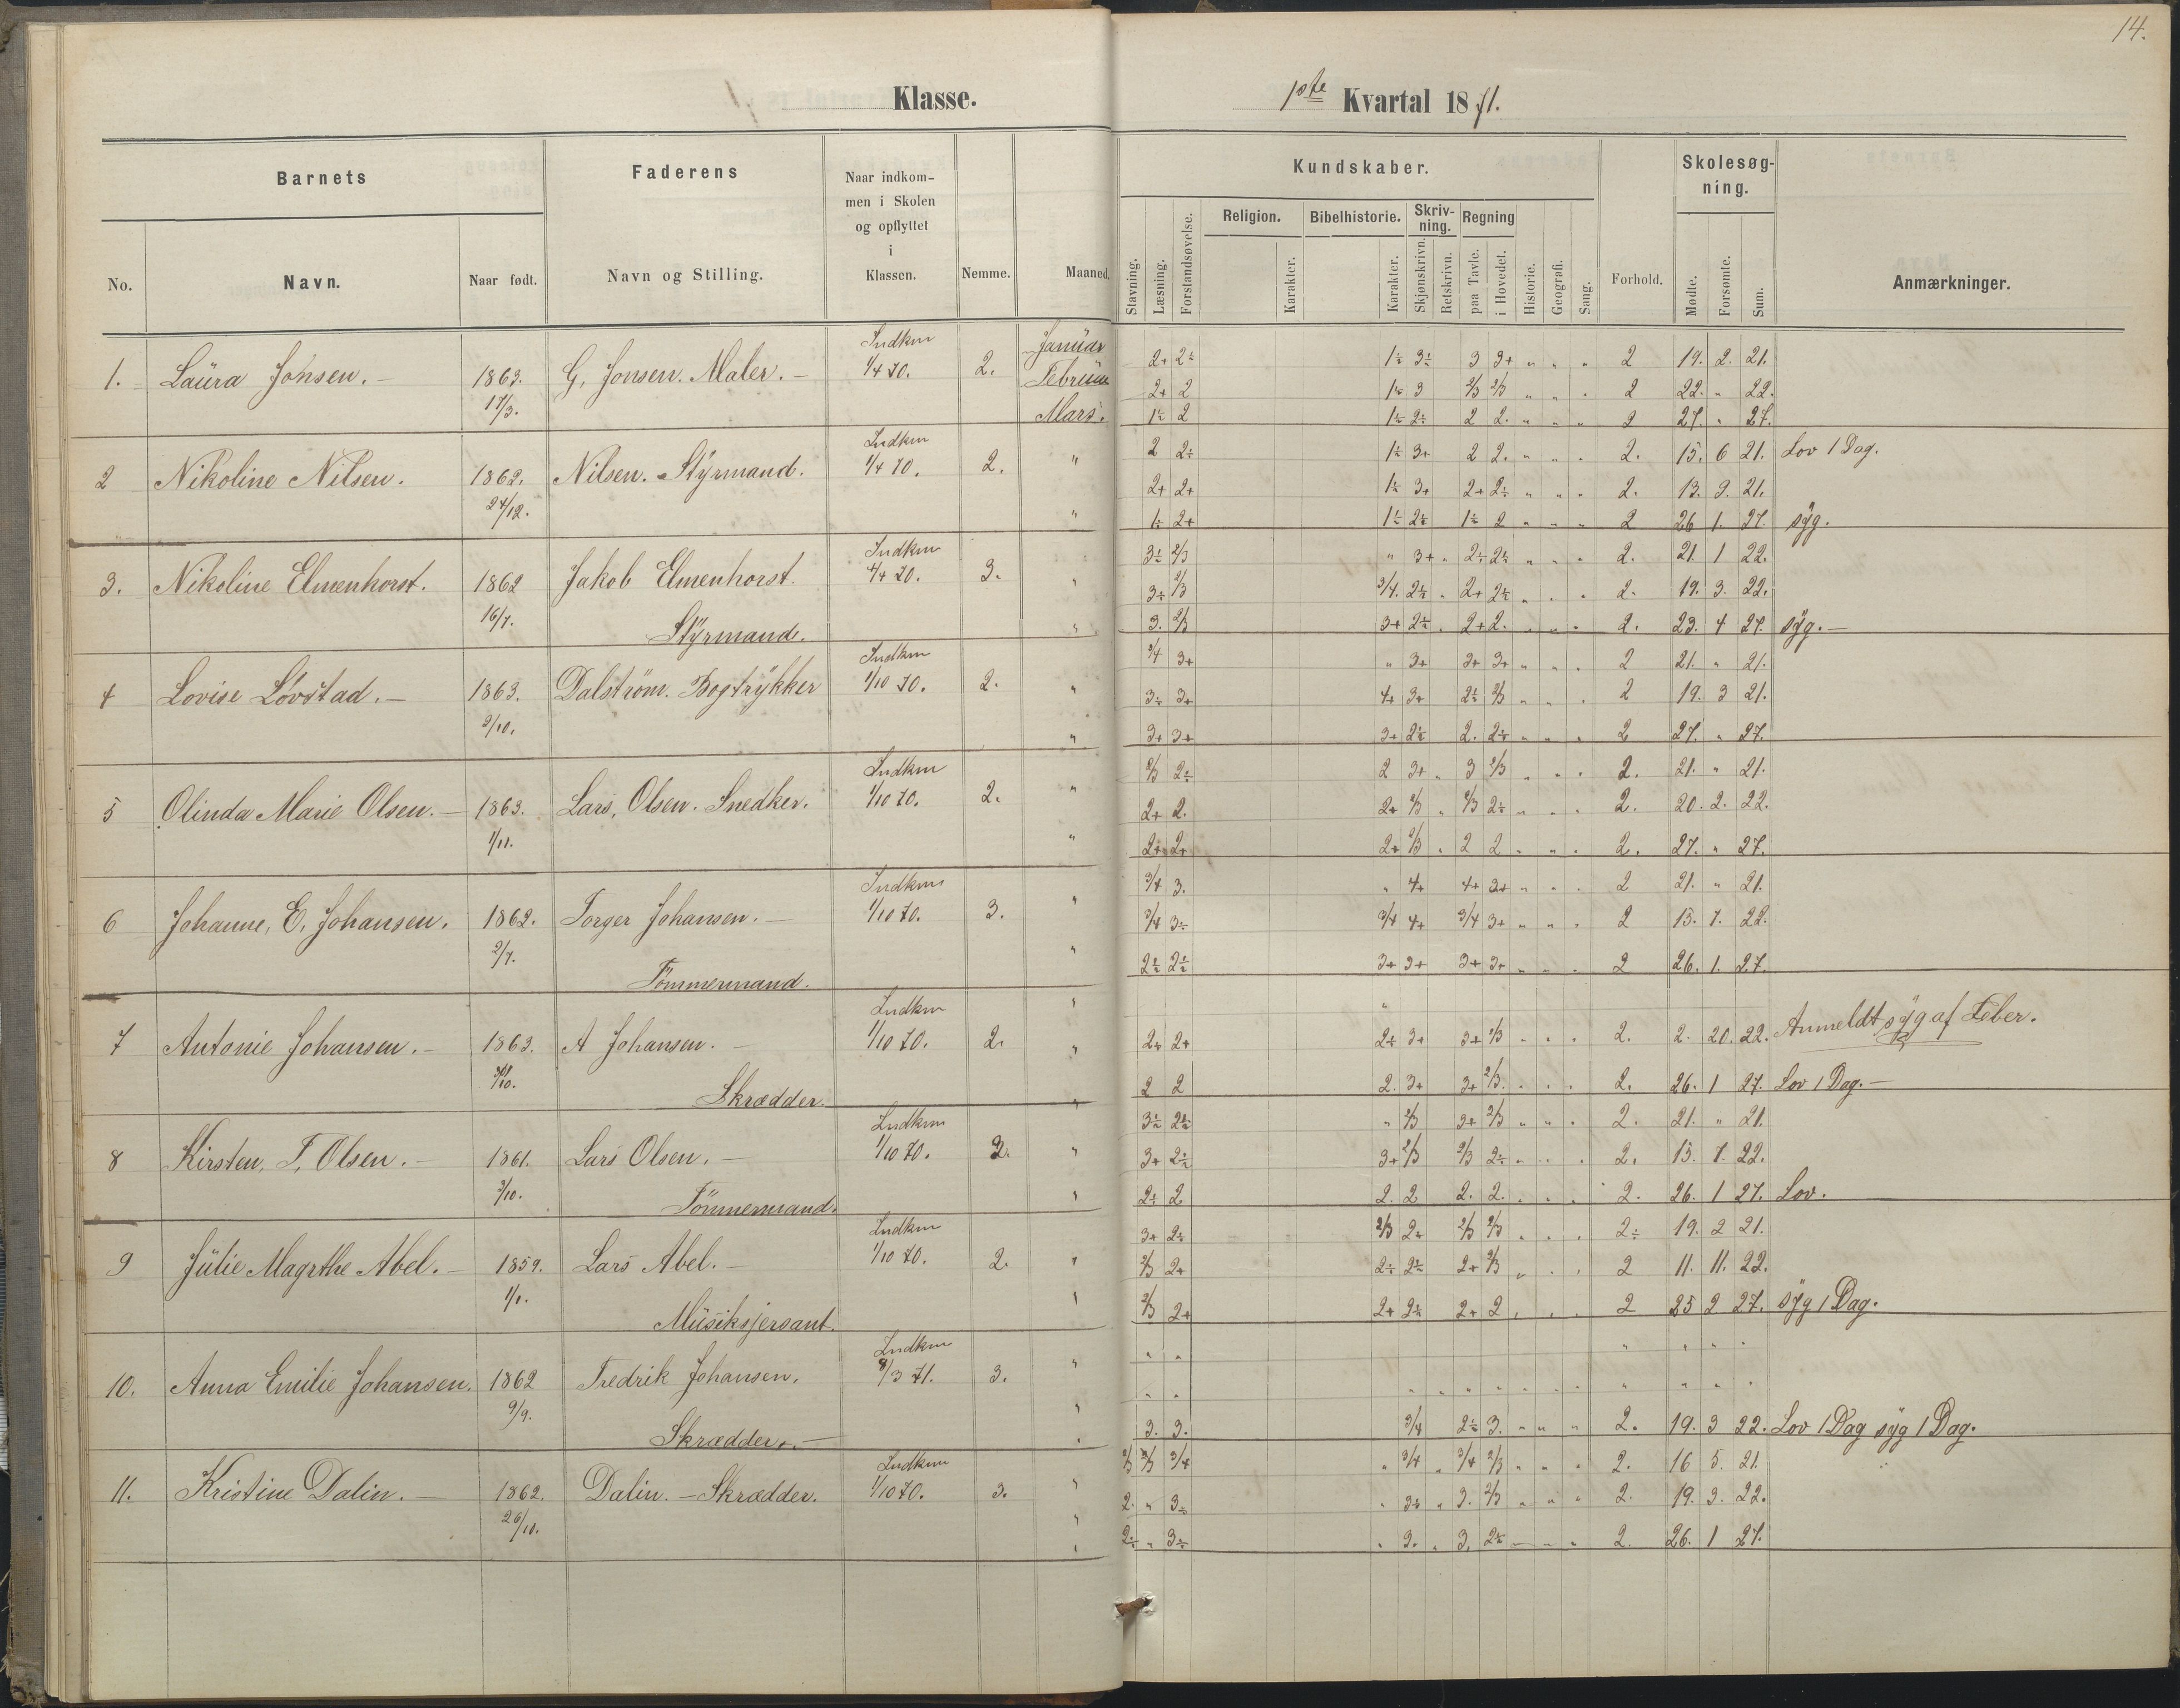 14.
1 Klasse.
1ste Kvartal 1871.
Barnets
Faderens
Naar indkom-
men i Skolen
og opflyttet
i
Klassen.
No.
Navn.
Naar født.
Navn og Stilling.
Nemme.
Maaned.
Kundskaber.
Stavning.
Læsning.
Forstandsøvelse.
Religion.
Karakter.
Bibelhistorie.
Karakter.
Skriv-
ning.
Skjønskrivn.
Retskrivn.
Regning
paa Tavle.
i Hovedet.
Historie.
Geografi.
Sang.
Forhold.
Skolesøg-
ning.
Mødte.
Forsømte.
Sum.
Anmærkninger.
Indkm Januar 2+ 2÷ 1÷ 3÷ 3 3+ " " " 2 19. 2. 21.
1. Laura Jonsen. 1863. G. Jonsen. Maler. 1/4 70. 2. Februar 2+ 2 1÷ 3 2/3 2/3 " " " 2 22. " 22.
17/3. Mars. 1÷ 2 1÷ 2÷ 2 2. " " " 2 27. " 27.
Indkm 2 2÷ 1÷ 3+ 2 2. " " " 2. 15. 6 21. Lov 1 Dag.
2 Nikoline Nilsen. 1862. Nilsen. Styrmand. 1/4 70. 2. " 2+ 2+ 1÷ 3+ 2+ 2÷ " " " 2. 13. 9. 21.
24/12. " 1÷ 2+ 1÷ 2÷ 1÷ 2 " " " 2 26 1. 27. syg.
Indkm " 3÷ 2/3 " 3+ " 2÷ 2÷ " " " 2. 21. 1 22.
3. Nikoline Elmenhorst. 1862 Jakob Elmenhorst. 4/4 70. 3. " 3+ 2/3 3/4. 2÷ " 2+ 2÷ " " " 2. 19. 3. 22.
16/7. Styrmand. " 3. 2/3 3+ 2÷ " 2+ 2. " " " 2. 23. 4 27. syg.
Indkm 3/4 3+ " 3+ 3+ 3+ " " " 2 21. " 21.
4 Lovise Lövstad. 1863. Dalström. Bogtrykker 1/10 70. 2. " 3÷ 3+ 4+ 3+ 2÷ 2/3 " " " 2 19. 3 21.
2/10. " 3+ 3+ 3+ 2÷ 2. 2÷ " " " 2 27. " 27.
Indkm 2/3 2÷ 2 3+ " 3 2/3 " " " 2. 21. " 21.
5 Olinda Marie Olsen. 1863. Lars, Olsen. Snedker. 1/10 70. 2. " 2+ 2. 2+ 2/3 " 2/3 2÷ " " " 2. 20. 2. 22.
1/11. " 2+ 2+ 2+ 2/3 " 2 2 " " " 2. 27. " 27.
Indkm " 3/4 3. " 4+ 4+ 3+ " " " 2 21. " 21.
6 Johanne, E. Johansen. 1862. Torger Johansen. 1/10 70. 3. 3/4 3÷ 3/4 4+ 3/4 3+ " " " 2 15. 7. 22.
2/7. Tömmermand. " 2÷ 2÷ 3+ 3+ 3+ 3+ " " " 2 26. 1. 27.
Indkm " "
7 Antonie Johansen. 1863. A Johansen. 1/10 70. 2. " 2÷ 2+ 2÷ 3+ 3+ 2/3 " " " 2. 2. 20. 22. Anmeldt syg af Feber.
Skrædder. " 2 2 2. 3+ 3+ 2/3. " " " 2. 26. 1 27. Lov 1 Dag.
Indkm 3÷ 2÷ " 2/3 3+ 2/3 " " " 2. 21. " 21.
8 Kirsten, T, Olsen. 1861. Lars Olsen. 1/10 70. 2. " 3+ 2÷ 3+ 2/3 2/3 2÷ " " " 2. 15. 7. 22.
3/10. Tömmermand. " 2÷ 2 2. 2 2. 2. " " " 2. 26. 1 27. Lov.
Indkm 3+ 2÷ 2/3 2÷ 2/3 2/3 " " " 2÷ 19. 2 21.
9 Julie Magrthe Abel. 1859. Lars Abel. 1/10 70. 2. " 2/3 2+ 2÷ 2÷ 2+ 2/3 " " " 2 11. 11. 22.
1/1. Musiksjersant. " 2/3 2+ 2+ 2÷ 2+ 2 " " " 2 25 2 27. syg 1 Dag.
Indkm " " " " " "
10. Anna Emilie Johansen. 1862 Fredrik Johansen. 8/3 71. 3. " " " " " " " " " " " " " "
9/9. Skrædder. " 3. 3. 3/4 2÷ 3. " " " 2. 19. 3 22. Lov 1 Dag syg 1 Dag.
Indkm 2/3 2/3 3/4 " 3/4 " 3/4 2/3 " " " 2. 16 5. 21.
11. Kristine Dalin. 1862. Dalin. Skrædder. 1/10 70. 3. " 2. " 3÷ " 3÷ " 3. 2/3 " " " 2. 19. 3. 22.
26/10. " 2÷ " 3÷ " 3. " 3. 2÷ " " " 2. 26. 1 27.